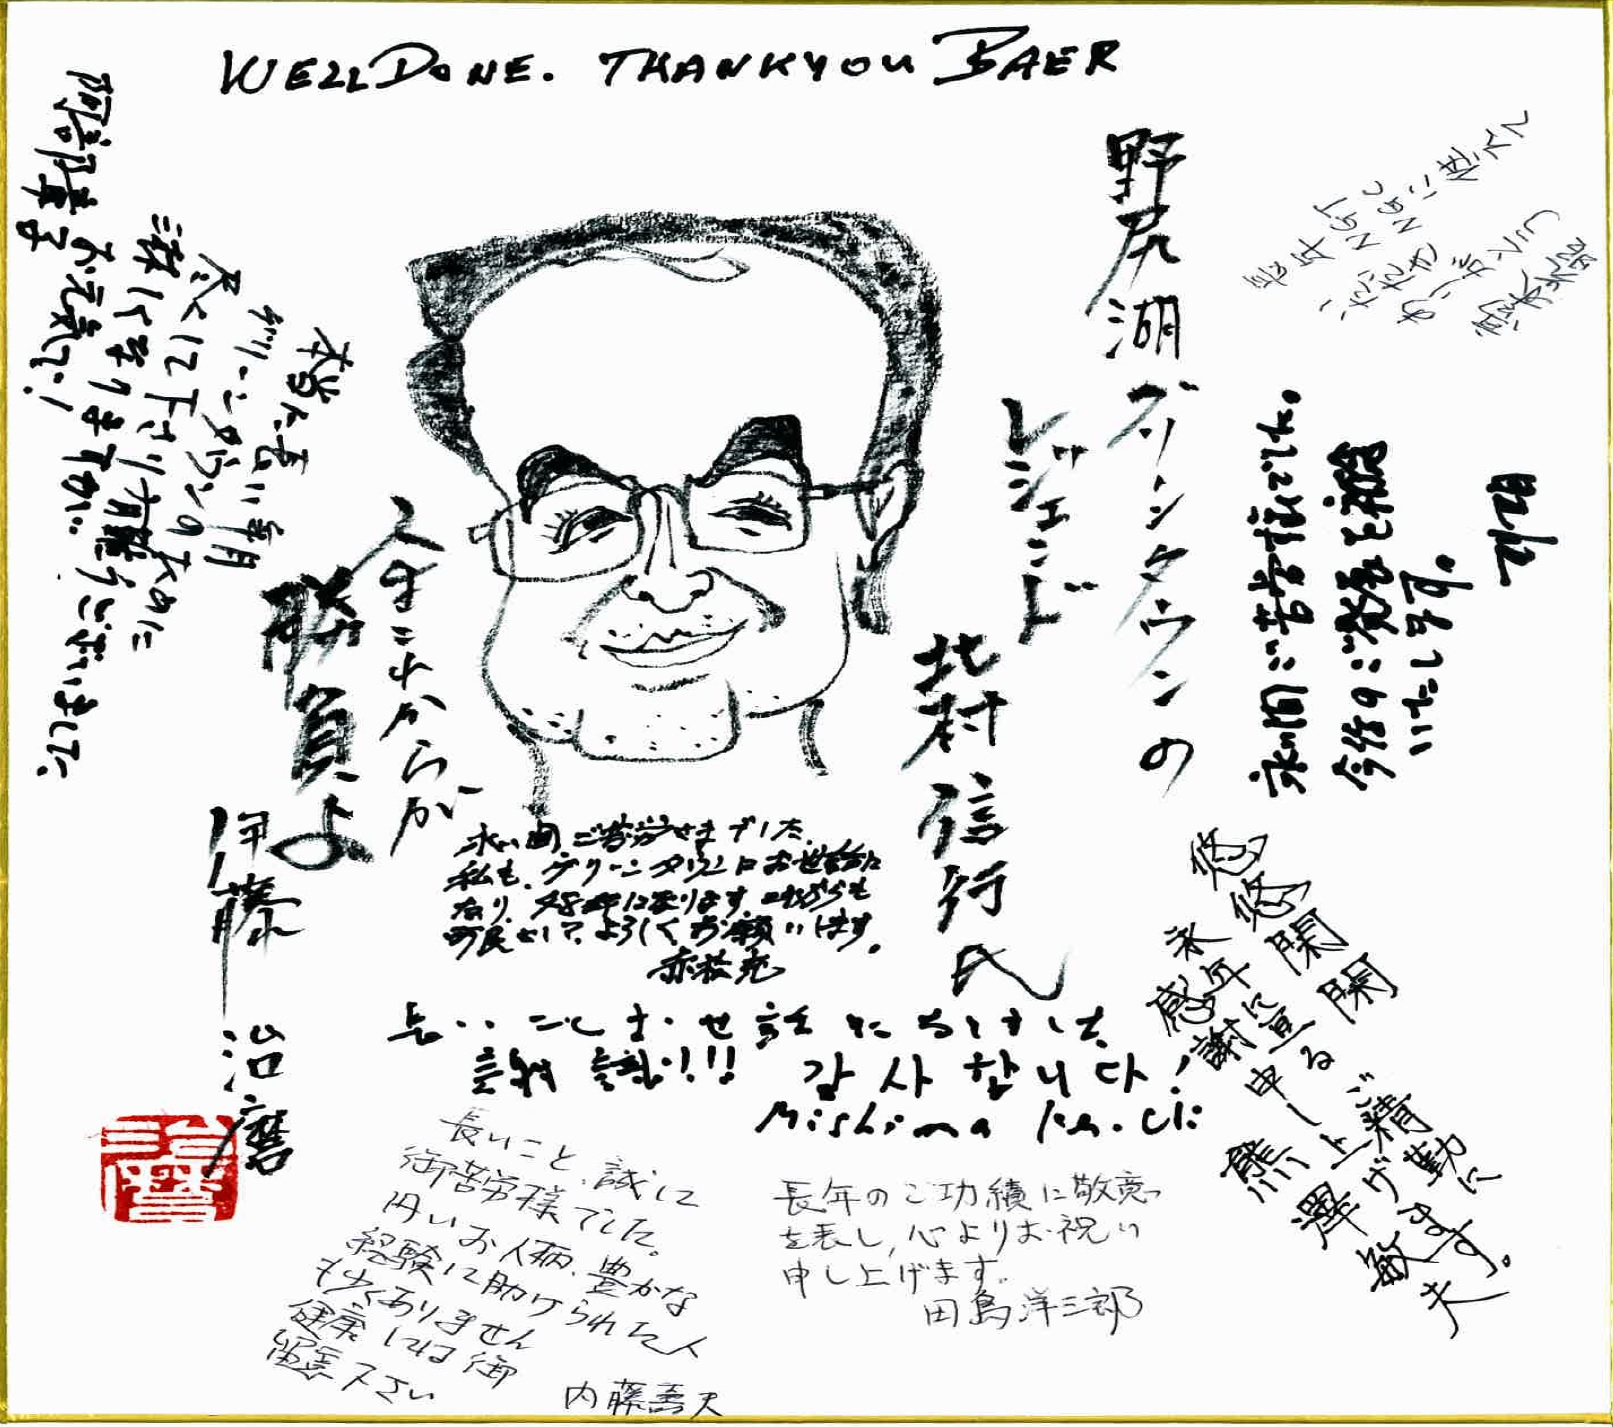 WELL DONE. THANK YOU BAER
野尻湖グリーンタウンの
レジェンド
北村信行氏
永い間ご苦労様でした。
今後のご発展を祈念
いたします。
人生これからが
勝負よ
伊藤治磨
本当に長い年月
グリーンタウンの為に
尽くして下さり有難うございました。
お元気で!
永い間、ご苦労さまでした
私も、グリーンタウンにお世話に
なり、48年になります。これからも
町民として、よろしくお願いします。
赤松
長いことお世話になりました
感謝!!! 감사합니다!
Mishima Ken.ichi
悠悠閑閑
永年に亘るご精勤に
感謝申し上げます。
熊澤敏夫
長いこと、誠に
御苦労様でした。
円いお人柄、豊かな
経験に助けられた人
も少くありません
健康には御
留意下さい
内藤
長年のご功績に敬意
を表し、心よりお祝い
申し上げます。
田島洋三郎
治磨